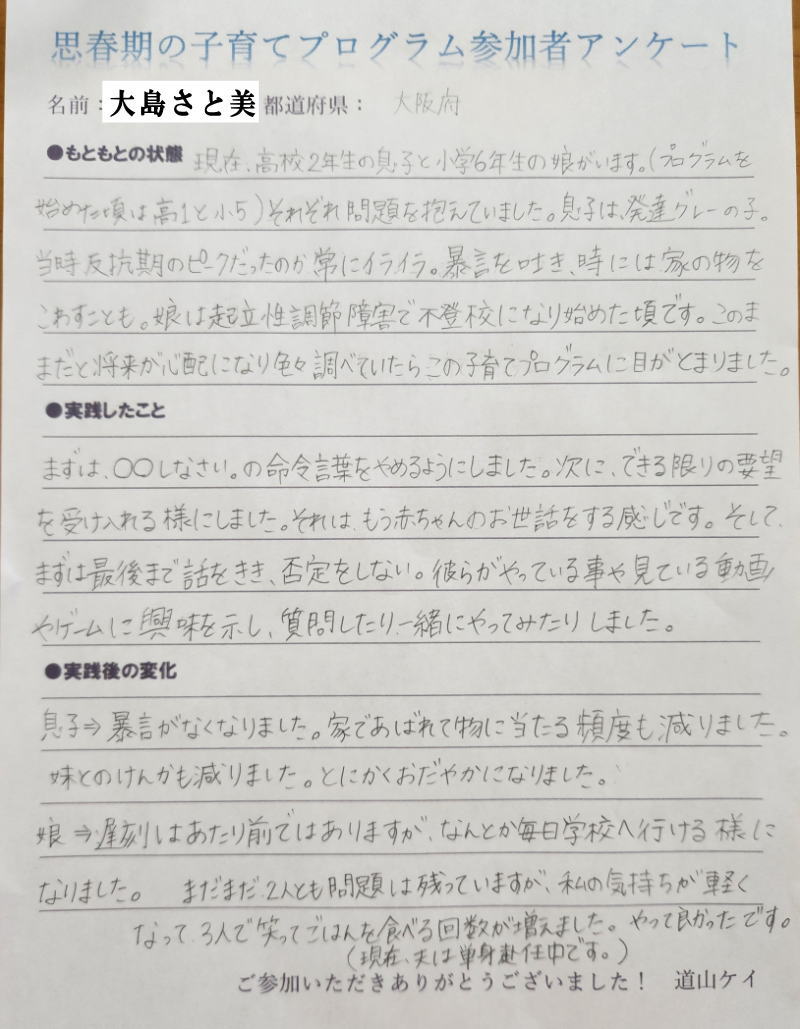 思春期の子育てプログラム参加者アンケート
名前：大島さと美 都道府県： 大阪府
●もともとの状態 現在、高校2年生の息子と小学6年生の娘がいます。(プログラムを
始めた頃は高1と小5)それぞれ問題を抱えていました。息子は、発達グレーの子。
当時反抗期のピークだったのか常にイライラ。暴言を吐き、時には家の物を
こわすことも。娘は起立性調節障害で不登校になり始めた頃です。このま
まだと将来が心配になり色々調べていたらこの子育てプログラムに目がとまりました。
●実践したこと
まずは、〇〇しなさい。の命令言葉をやめるようにしました。次に、できる限りの要望
を受け入れる様にしました。それは、もう赤ちゃんのお世話をする感じです。そして、
まずは最後まで話をきき、否定をしない。彼らがやっている事や見ている動画
やゲームに興味を示し、質問したり、一緒にやってみたりしました。
●実践後の変化
息子⇒暴言がなくなりました。家であばれて物に当たる頻度も減りました。
妹とのけんかも減りました。とにかくおだやかになりました。
娘⇒遅刻はあたり前ではありますが、なんとか毎日学校へ行ける様に
なりました。 まだまだ2人とも問題は残っていますが、私の気持ちが軽く
なって、3人で笑ってごはんを食べる回数が増えました。やって良かったです。
(現在、夫は単身赴任中です。)
ご参加いただきありがとうございました！ 道山ケイ